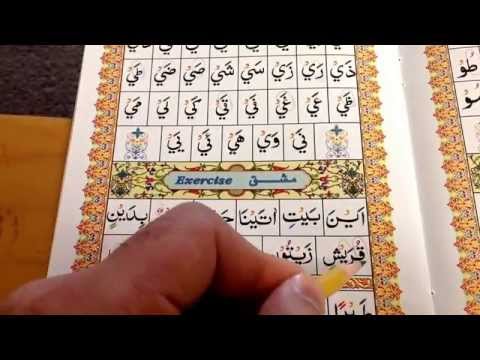 ذَيْ رَيْ زَيْ سَيْ شَيْ صَيْ ضَيْ طَيْ
ظَيْ عَيْ غَيْ فَيْ قَيْ كَيْ لَيْ مَيْ
نَيْ وَيْ هَيْ ءَيْ يَيْ
Exercise مشق
اَيْنَ بَيْتِ اٰتَيْنَا بِدَيْنٍ
قُرَيْشٍ
طَيْرًا
طُوْ